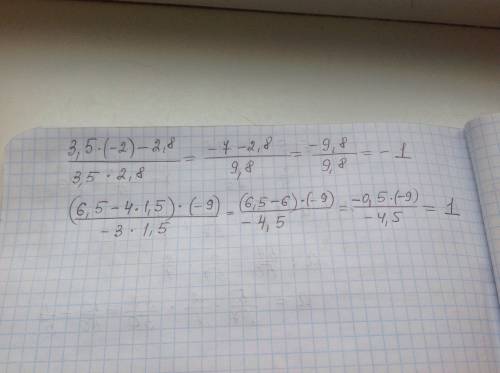 (3,5·(-2)-2,8)/(3,5·2,8) = (-7-2,8)/(9,8) = (-9,8)/(9,8) = -1
((6,5-4·1,5)·(-9))/(-3·1,5) = ((6,5-6)·(-9))/(-4,5) = (-0,5·(-9))/(-4,5) = 1